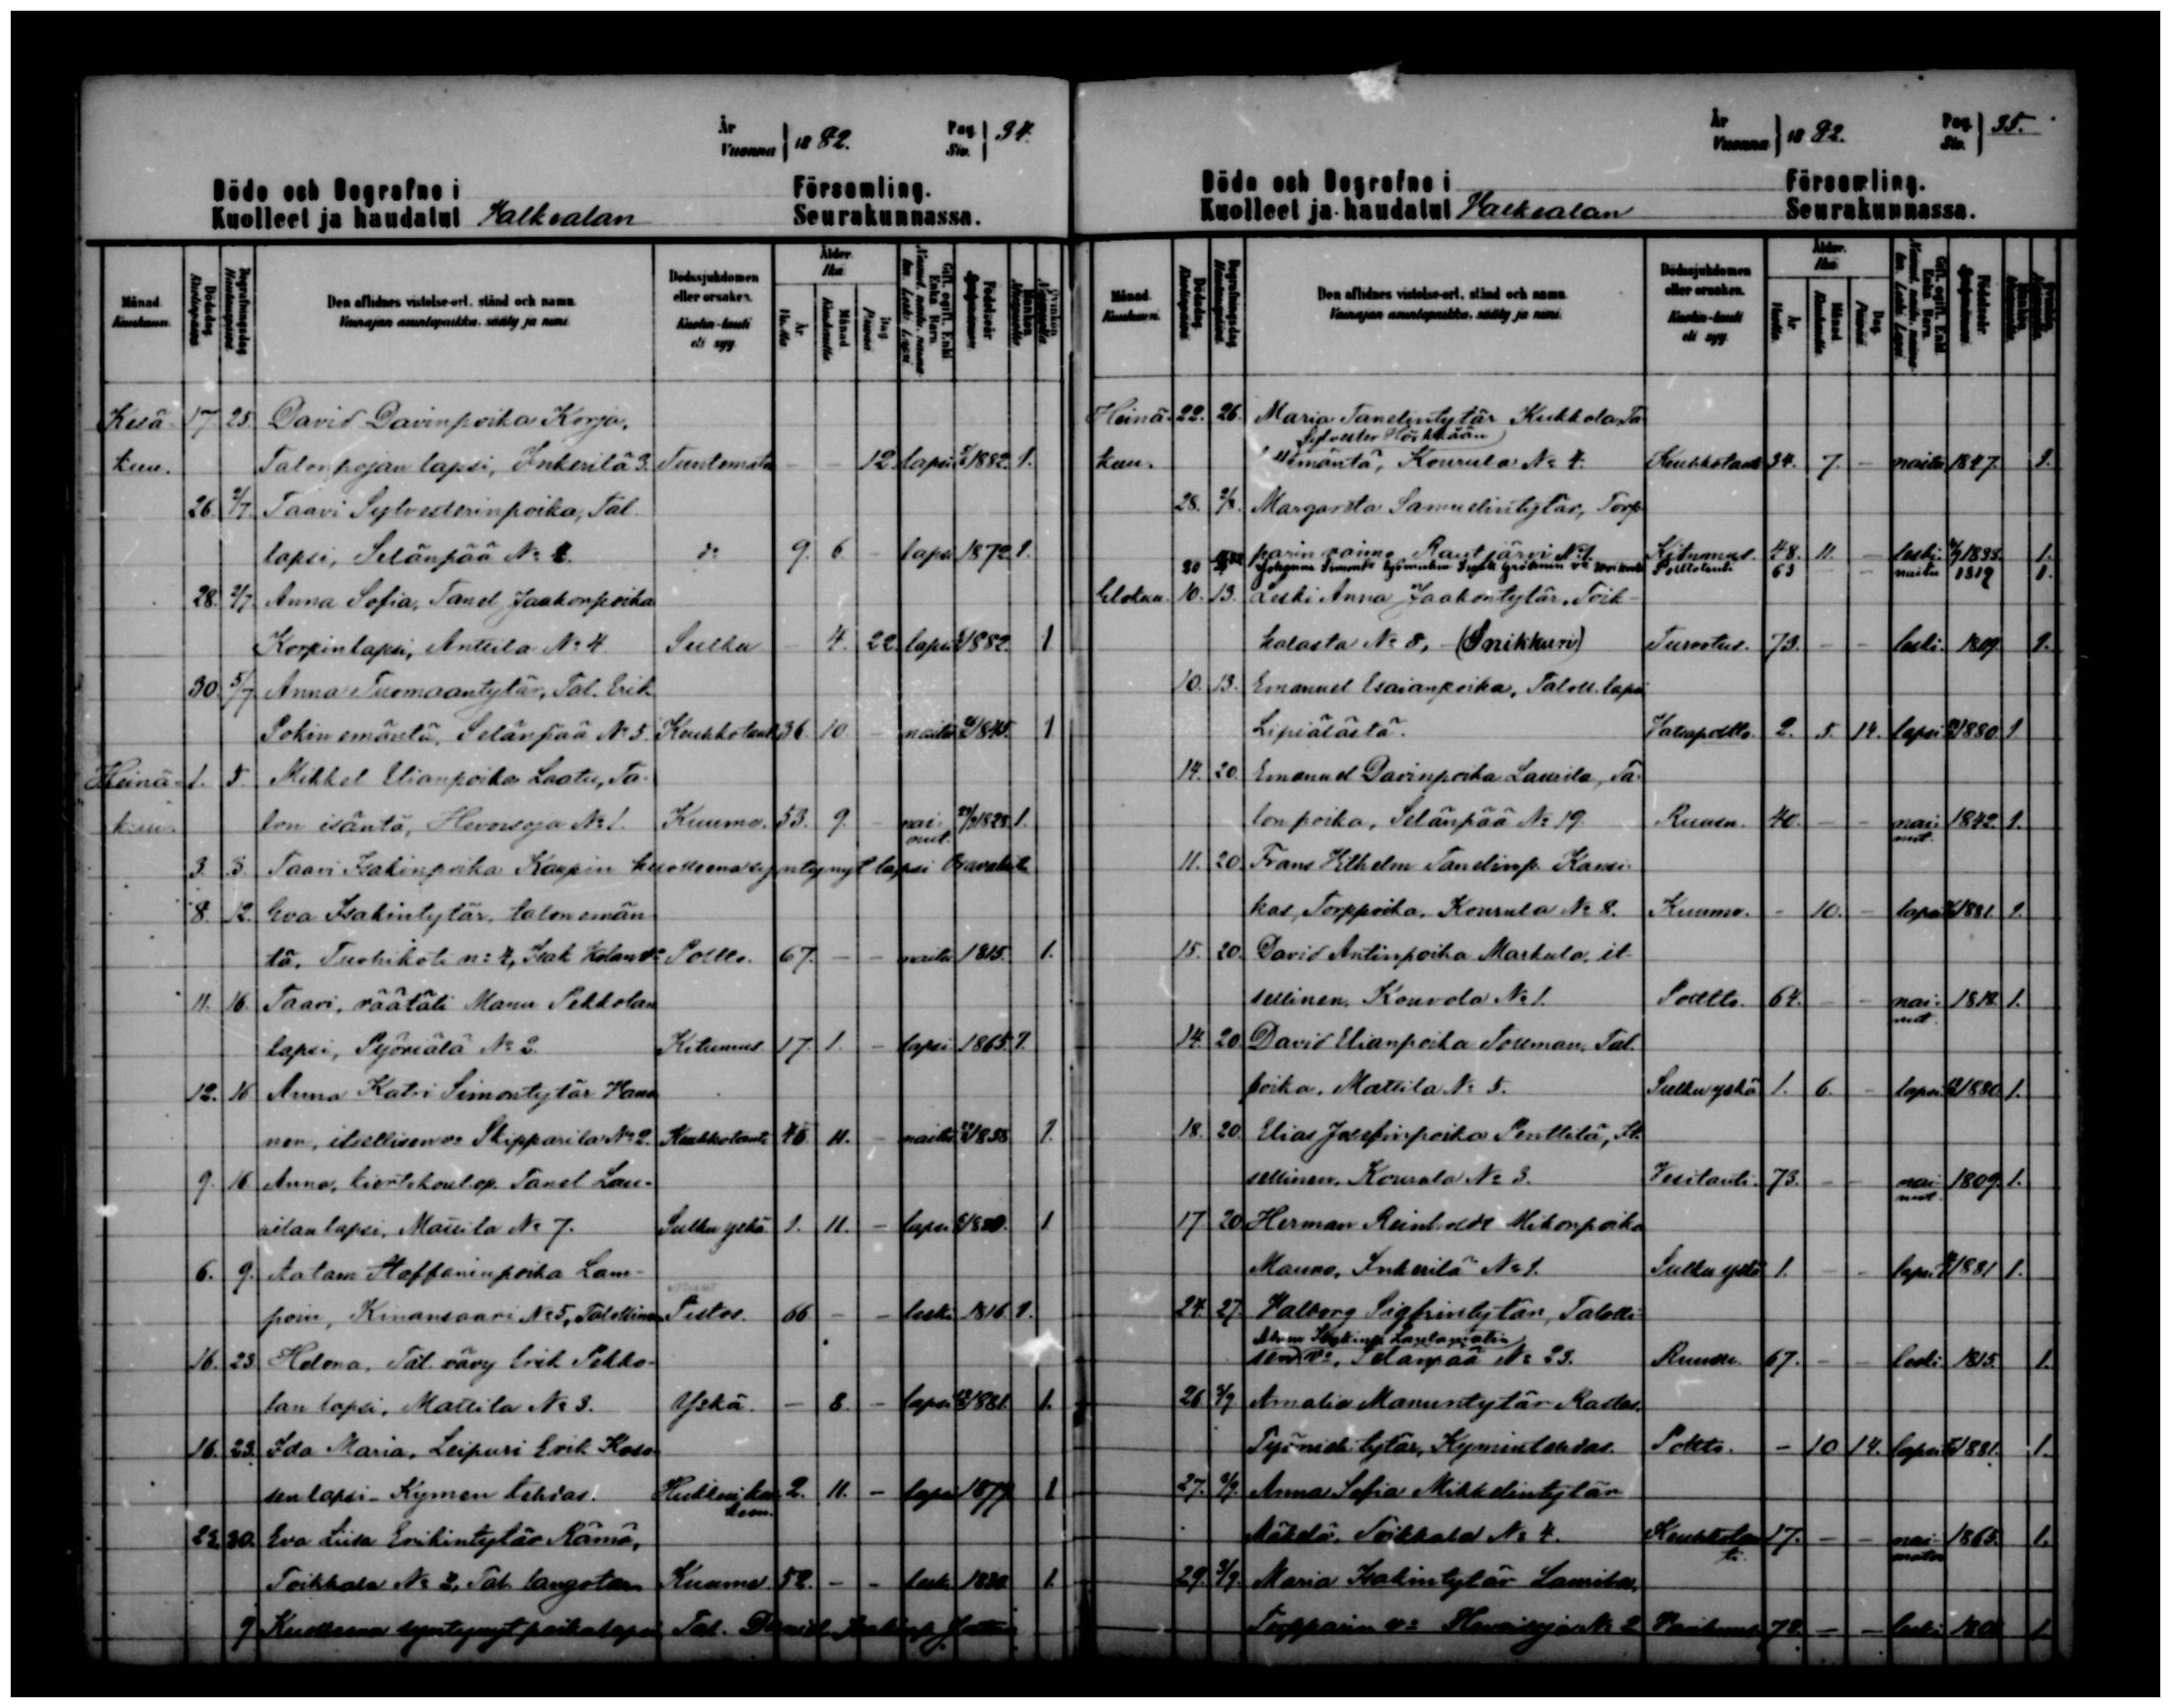 År
Vuonna } 1882. Pag. Siv. } 34.
Döde och Begrafne i Församling.
Kuolleet ja haudatut Valkealan Seurakunnassa.
Månad. Kuukausi. Dödsdag Kuolinpäivä Begrafningsdag Hautauspäivä Den aflidnes vistelse-ort, stånd och namn. Vainajan asuntopaikka, sääty ja nimi. Dödssjukdomen eller orsaken. Kuolin-tauti eli syy. Ålder. Ikä. År Vuotta Månad Kuukautta Dag Päivää Gift, ogift, Enkl. Enka Barn. Födelseår Mankön Qvinkön
Kesä- 17 25. David Davinpoika Korja,
kuu. Talonpojan lapsi, Inkerilä 3. Tuntemato — — 12. lapsi 1882. 1.
26. 2/7. Taavi Sylvesterinpoika, Tal.
lapsi, Selänpää No 2. do 9. 6. — lapsi 1872. 1.
28. 2/7 Anna Sofia, Tanel Jaakonpoika
Korpin lapsi, Anttila No 4 Sulku — 4. 22. lapsi 1882. 1
30. 5/7 Anna Tuomaantytär, Tal. Erik
Pokin emäntä, Selänpää No 5. Keuhkotauti 36. 10. — naitu 1845. 1
Heinä- 1. 5. Mikkel Elianpoika Laatu, Ta-
kuu. lon isäntä, Hevosoja No 1. Kuume. 53. 9. — nai-nut. 1828. 1.
3. 3. Taavi Isakinpoika Kaupin kuolleena syntynyt lapsi Oravala
8. 12. Eva Isakintytär, talon emän
tä, Tuohikoti no 4, Isak Poltto. 67. — — naitu 1815. 1.
11. 16. Taavi, räätäli Manu Pekkolan
lapsi, Pyöriälä No 2. Kitumus. 17. 1. — lapsi 1865. 1.
12. 16 Anna Katri Simontytär Hana
nen, itsellisen vo Skipparila No 2. Keuhkotauti 45 11. — naitu 1.
9. 16 Anna, kiertokoul.op. Tanel Lau-
rilan lapsi, Mattila No 7. Sulku yskä 1. 11. — lapsi 1880. 1
6. 9. Aatam Staffaninpoika Lam-
poin, Kinansaari No 5, Talollinen Pistos. 66 — — leski 1816. 1.
16. 23. Helena, Tal. vävy Erik Pekko-
lan lapsi, Mattila No 3. Yskä. — 8. — lapsi 1881. 1.
16. 23. Ida Maria, Leipuri Erik Koso
sen lapsi - Kymen tehdas. 2. 11. — lapsi 1879 1
23. 30. Eva Liisa Erikintytär Rämä,
Toikkala No 2, Tal. Kuume 52. — — leski 1830. 1.
9 Kuolleena syntynyt poikalapsi, Tal.
År
Vuonna } 1882. Pag. Siv. } 35.
Döde och Begrafne i Församling.
Kuolleet ja haudatut Valkealan Seurakunnassa.
Månad. Kuukausi. Dödsdag Kuolinpäivä Begrafningsdag Hautauspäivä Den aflidnes vistelse-ort, stånd och namn. Vainajan asuntopaikka, sääty ja nimi. Dödssjukdomen eller orsaken. Kuolin-tauti eli syy. Ålder. Ikä. År Vuotta Månad Kuukautta Dag Päivää Gift, ogift, Enkl. Enka Barn. Födelseår Mankön Qvinkön
Heinä- 22. 26. Maria Tanelintytär Kukkola, Ta
Sylvester
kuu. emäntä, Kourula No 4. Keuhkotauti 34. 7. — naitu 1847. 1.
28. 2/8. Margareta Samuelintytär, Torp
parin vaimo, Rautjärvi No 1. Kitumus. 48. 11. — leski 1833. 1.
30 Johanna Polttotauti 63 — naitu 1819 1.
Elokuu. 10. 13. Leski Anna Jaakontytär, Toik-
kalasta No 8, - (Snikkuri) Turvotus. 73. — — leski. 1809. 1.
10. 13. Emanuel Esaianpoika, Taloll. lapsi
Lipiälästä. Vatsapoltto. 2. 5. 14. lapsi 1880 1
14. 20. Emanuel Davinpoika Laurila, Ta-
lon poika, Selänpää No 19. Ruusu. 40. — — nai-nut. 1842. 1.
11. 20. Frans Vilhelm Tanelinp. Kansi-
kas, Torppoika, Kourula No 8. Kuume. — 10. — lapsi 1881. 1.
15. 20. David Antinpoika Markula, it-
sellinen, Kouvola No 1. Poltto. 64. — — nai-nut. 1818. 1.
14. 20 David Elianpoika Toseman, Tal.
poika, Mattila No 5. Sulku yskä 1. 6. — lapsi 1880. 1.
18. 20. Elias Josefinpoika Penttilä, It-
sellinen, Kourula No 3. Vesitauti. 73. — — nai-nut. 1809. 1.
17 20 Herman Reinholdt Mikonpoika
Mauno, Inkerilä No 1. Sulku yskä 1. — — lapsi 1881 1.
24. 27. Valborg Sigfrintytär, Talolli-
sen vo, Selänpää No 23. Ruusu. 67. — — leski 1815. 1.
26 2/9 Amalia Manuntytär Rastas,
Työmieh. tytär, Kymintehdas. Poltto. — 10 14. lapsi 1881. 1.
27. 3/9. Anna Sofia Mikkelintytär
Mäkelä, Toikkala No 4. Keuhkotauti. 17. — — nai-maton 1865. 1.
29. 3/9. Maria Isakintytär Laurila,
Torpparin vo Hevosoja No 2 78. — — leski 1